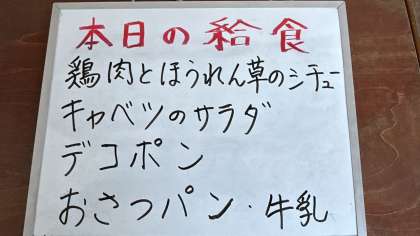 本日の給食
鶏肉とほうれん草のシチュー
キャベツのサラダ
デコポン
おさつパン・牛乳